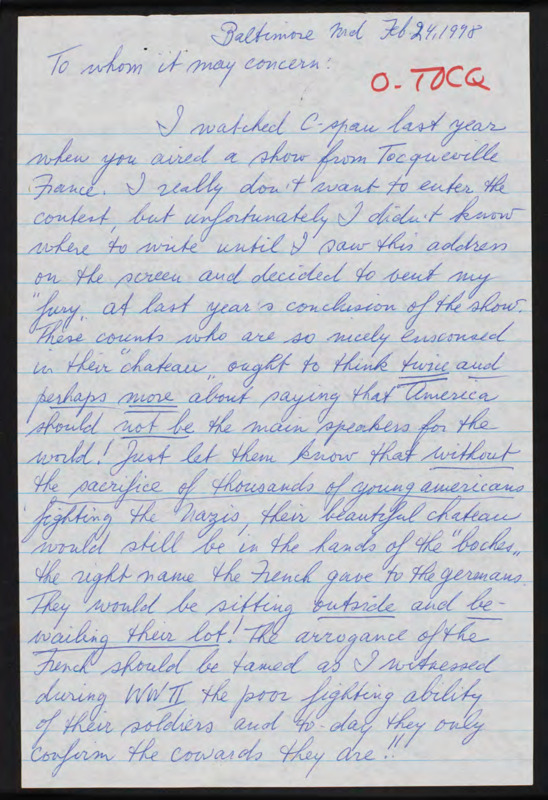 Baltimore Md Feb 24, 1998
To whom it may concern:
O-TOCQ
I watched C-span last year
when you aired a show from Tocqueville
France. I really don't want to enter the
contest, but unfortunately I didn't know
where to write until I saw this address
on the screen and decided to vent my
"fury" at last year's conclusion of the show.
These counts who are so nicely ensconsed
in their "chateau" ought to think twice and
perhaps more about saying that America
should not be the main speakers for the
world! Just let them know that without
the sacrifice of thousands of young americans
fighting the Nazis, their beautiful chateau
would still be in the hands of the "boches",
the right name the French gave to the germans.
They would be sitting outside and be-
wailing their lot! The arrogance of the
French should be tamed as I witnessed
during WW II the poor fighting ability
of their soldiers and to-day they only
confirm the cowards they are!!